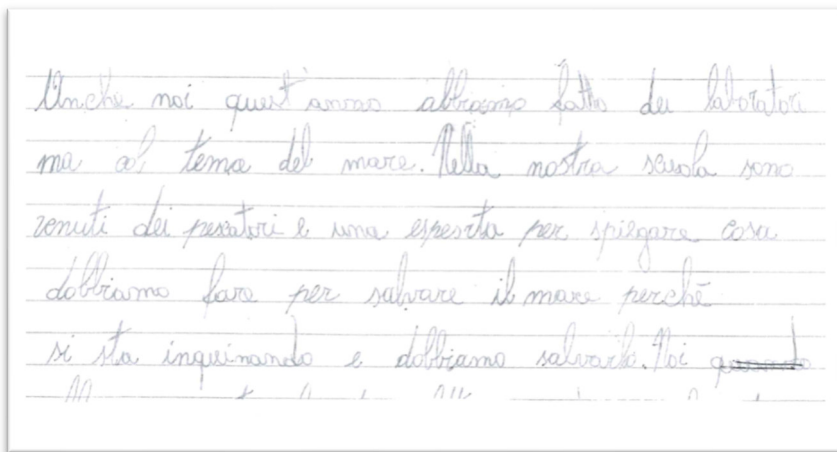 Anche noi quest'anno abbiamo fatto dei laboratori
ma col tema del mare. Nella nostra scuola sono
venuti dei pescatori e una esperta per spiegare cosa
dobbiamo fare per salvare il mare perchè
si sta inquinando e dobbiamo salvarlo. Noi